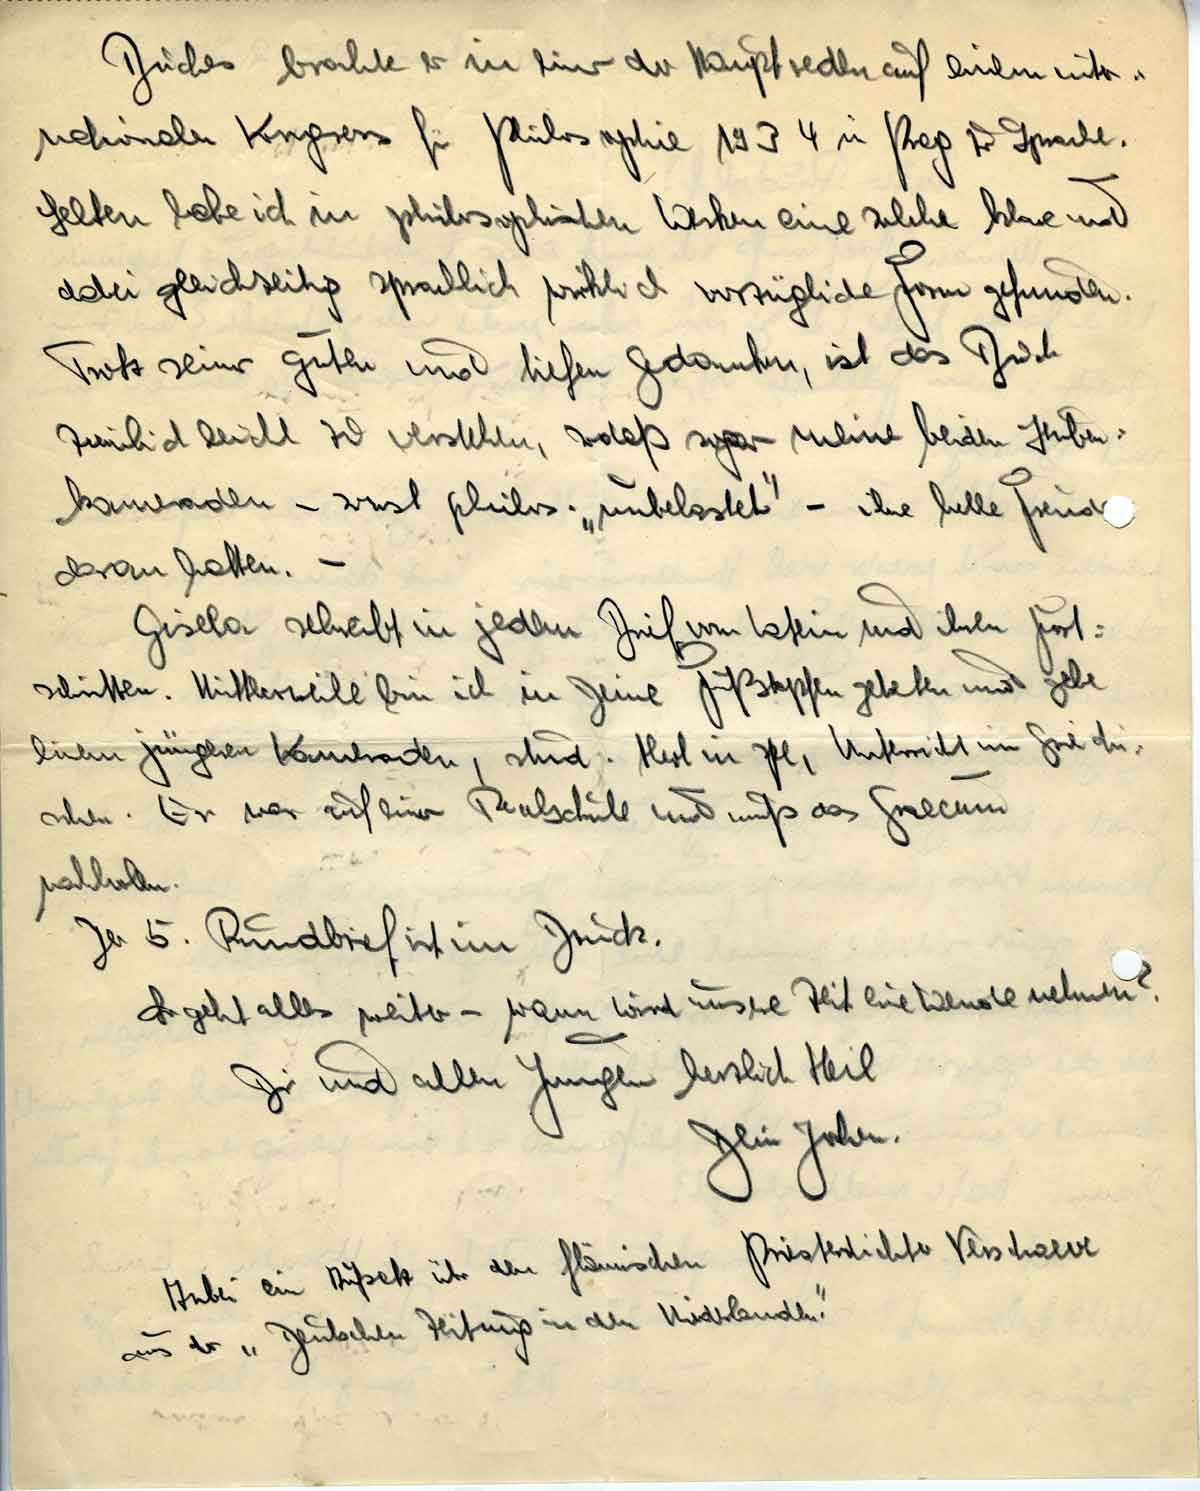 Buches brachte er in einer der Hauptreden auf einem inter-
nationalen Kongress für Philosophie 1934 in Prag zur Sprache.
Selten habe ich in philosophischen Werken eine solche klare und
dabei gleichzeitig sprachlich wirklich vorzügliche Form gefunden.
Trotz seiner guten und tiefen Gedanken, ist das Buch
ziemlich leicht zu verstehen, sodaß sogar meine beiden Stuben-
kameraden – sonst philos. „unbelastet" – ihre helle Freude
daran hatten. –
Gisela schreibt in jedem Brief vom Latein und ihren Fort-
schritten. Mittlerweile bin ich in Deine Fußstapfen getreten und gebe
einem jüngeren Kameraden, stud. Unterricht im Griechi-
schen. Er war auf einer Realschule und muß das Graecum
nachholen.
Der 5. Rundbrief ist im Druck.
So geht alles weiter – wann wird unsere Zeit eine Wende nehmen?
Dir und allen Jungen herzlich Heil
Dein Jochen.
Anbei ein Aufsatz über den flämischen Priesterdichter Verschaeve
aus der „Deutschen Zeitung in den Niederlanden."